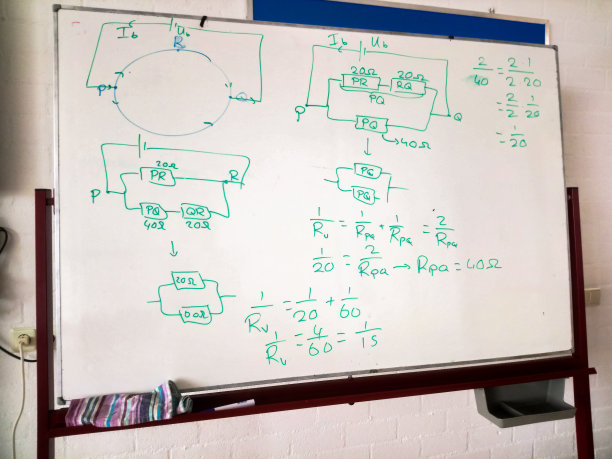 I_b U_b
R
P Q
I_b U_b
20Ω 20Ω
PR RQ
PQ
P Q
PQ → 40Ω
↓
PQ
PQ
2/40 = 2·1/2·20
= 2/2 · 1/20
= 1/20
20Ω
PR
P R
PQ QR
40Ω 20Ω
↓
20Ω
1/R_v = 1/R_PQ + 1/R_PQ = 2/R_PQ
1/20 = 2/R_PQ → R_PQ = 40Ω
1/R_v = 1/20 + 1/60
1/R_v = 4/60 = 1/15